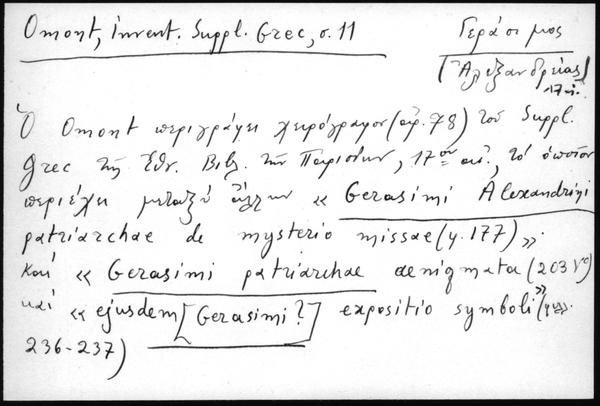 Omont, Invent. Suppl. Grec, σ. 11
Γεράσιμος
(Ἀλεξανδρείας)
17 αἰ.
Ὁ Omont περιγράφει χειρόγραφον (ἀρ. 78) τοῦ Suppl.
Grec τῆς Ἐθν. Βιβ. τῶν Παρισίων, 17ου αἰ., τὸ ὁποῖον
περιέχει μεταξὺ ἄλλων « Gerasimi Alexandrini
patriarchae de mysterio missae (φ. 177) ».
καὶ « Gerasimi patriarchae aenigmata (203 vo)
καὶ « ejusdem [Gerasimi?] expositio symboli » (φφ.
236-237)